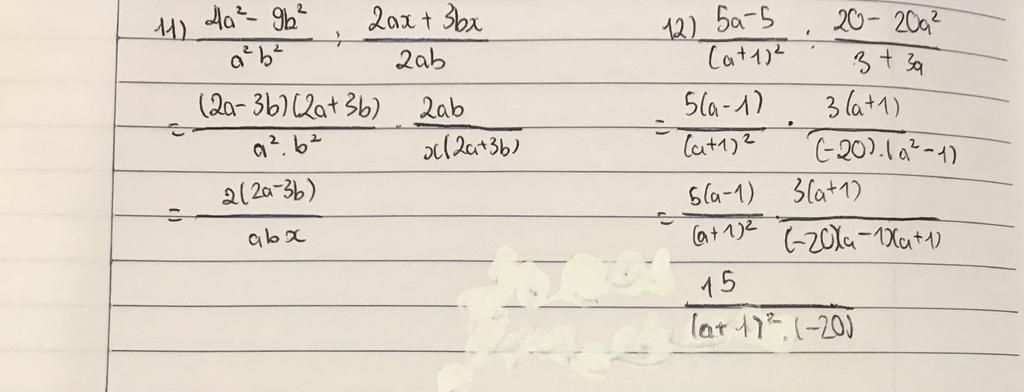 11) (4a² - 9b²)/(a²b²) : (2ax + 3bx)/(2ab)
= ((2a-3b)(2a+3b))/(a².b²) . (2ab)/(x(2a+3b))
= (2(2a-3b))/(abx)
12) (5a-5)/((a+1)²) : (20 - 20a²)/(3 + 3a)
= (5(a-1))/((a+1)²) . (3(a+1))/((-20).(a²-1))
= (5(a-1))/((a+1)²) . (3(a+1))/((-20)(a-1)(a+1))
15/((a+1)².(-20))